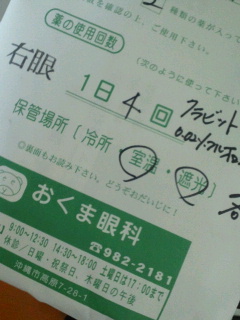 種類の薬が入って
確認の上、ご使用下さい。
薬の使用回数
(次のように使って下さい
右眼
1日4回
クラビット
保管場所〔冷所 室温・遮光〕
◎裏面もお読み下さい。どうぞおだいじに!
おくま眼科
☎982-2181
9:00〜12:30 14:30〜18:00 土曜日は17:00まで
休診/日曜・祝祭日、木曜日の午後
沖縄市高原7-28-1